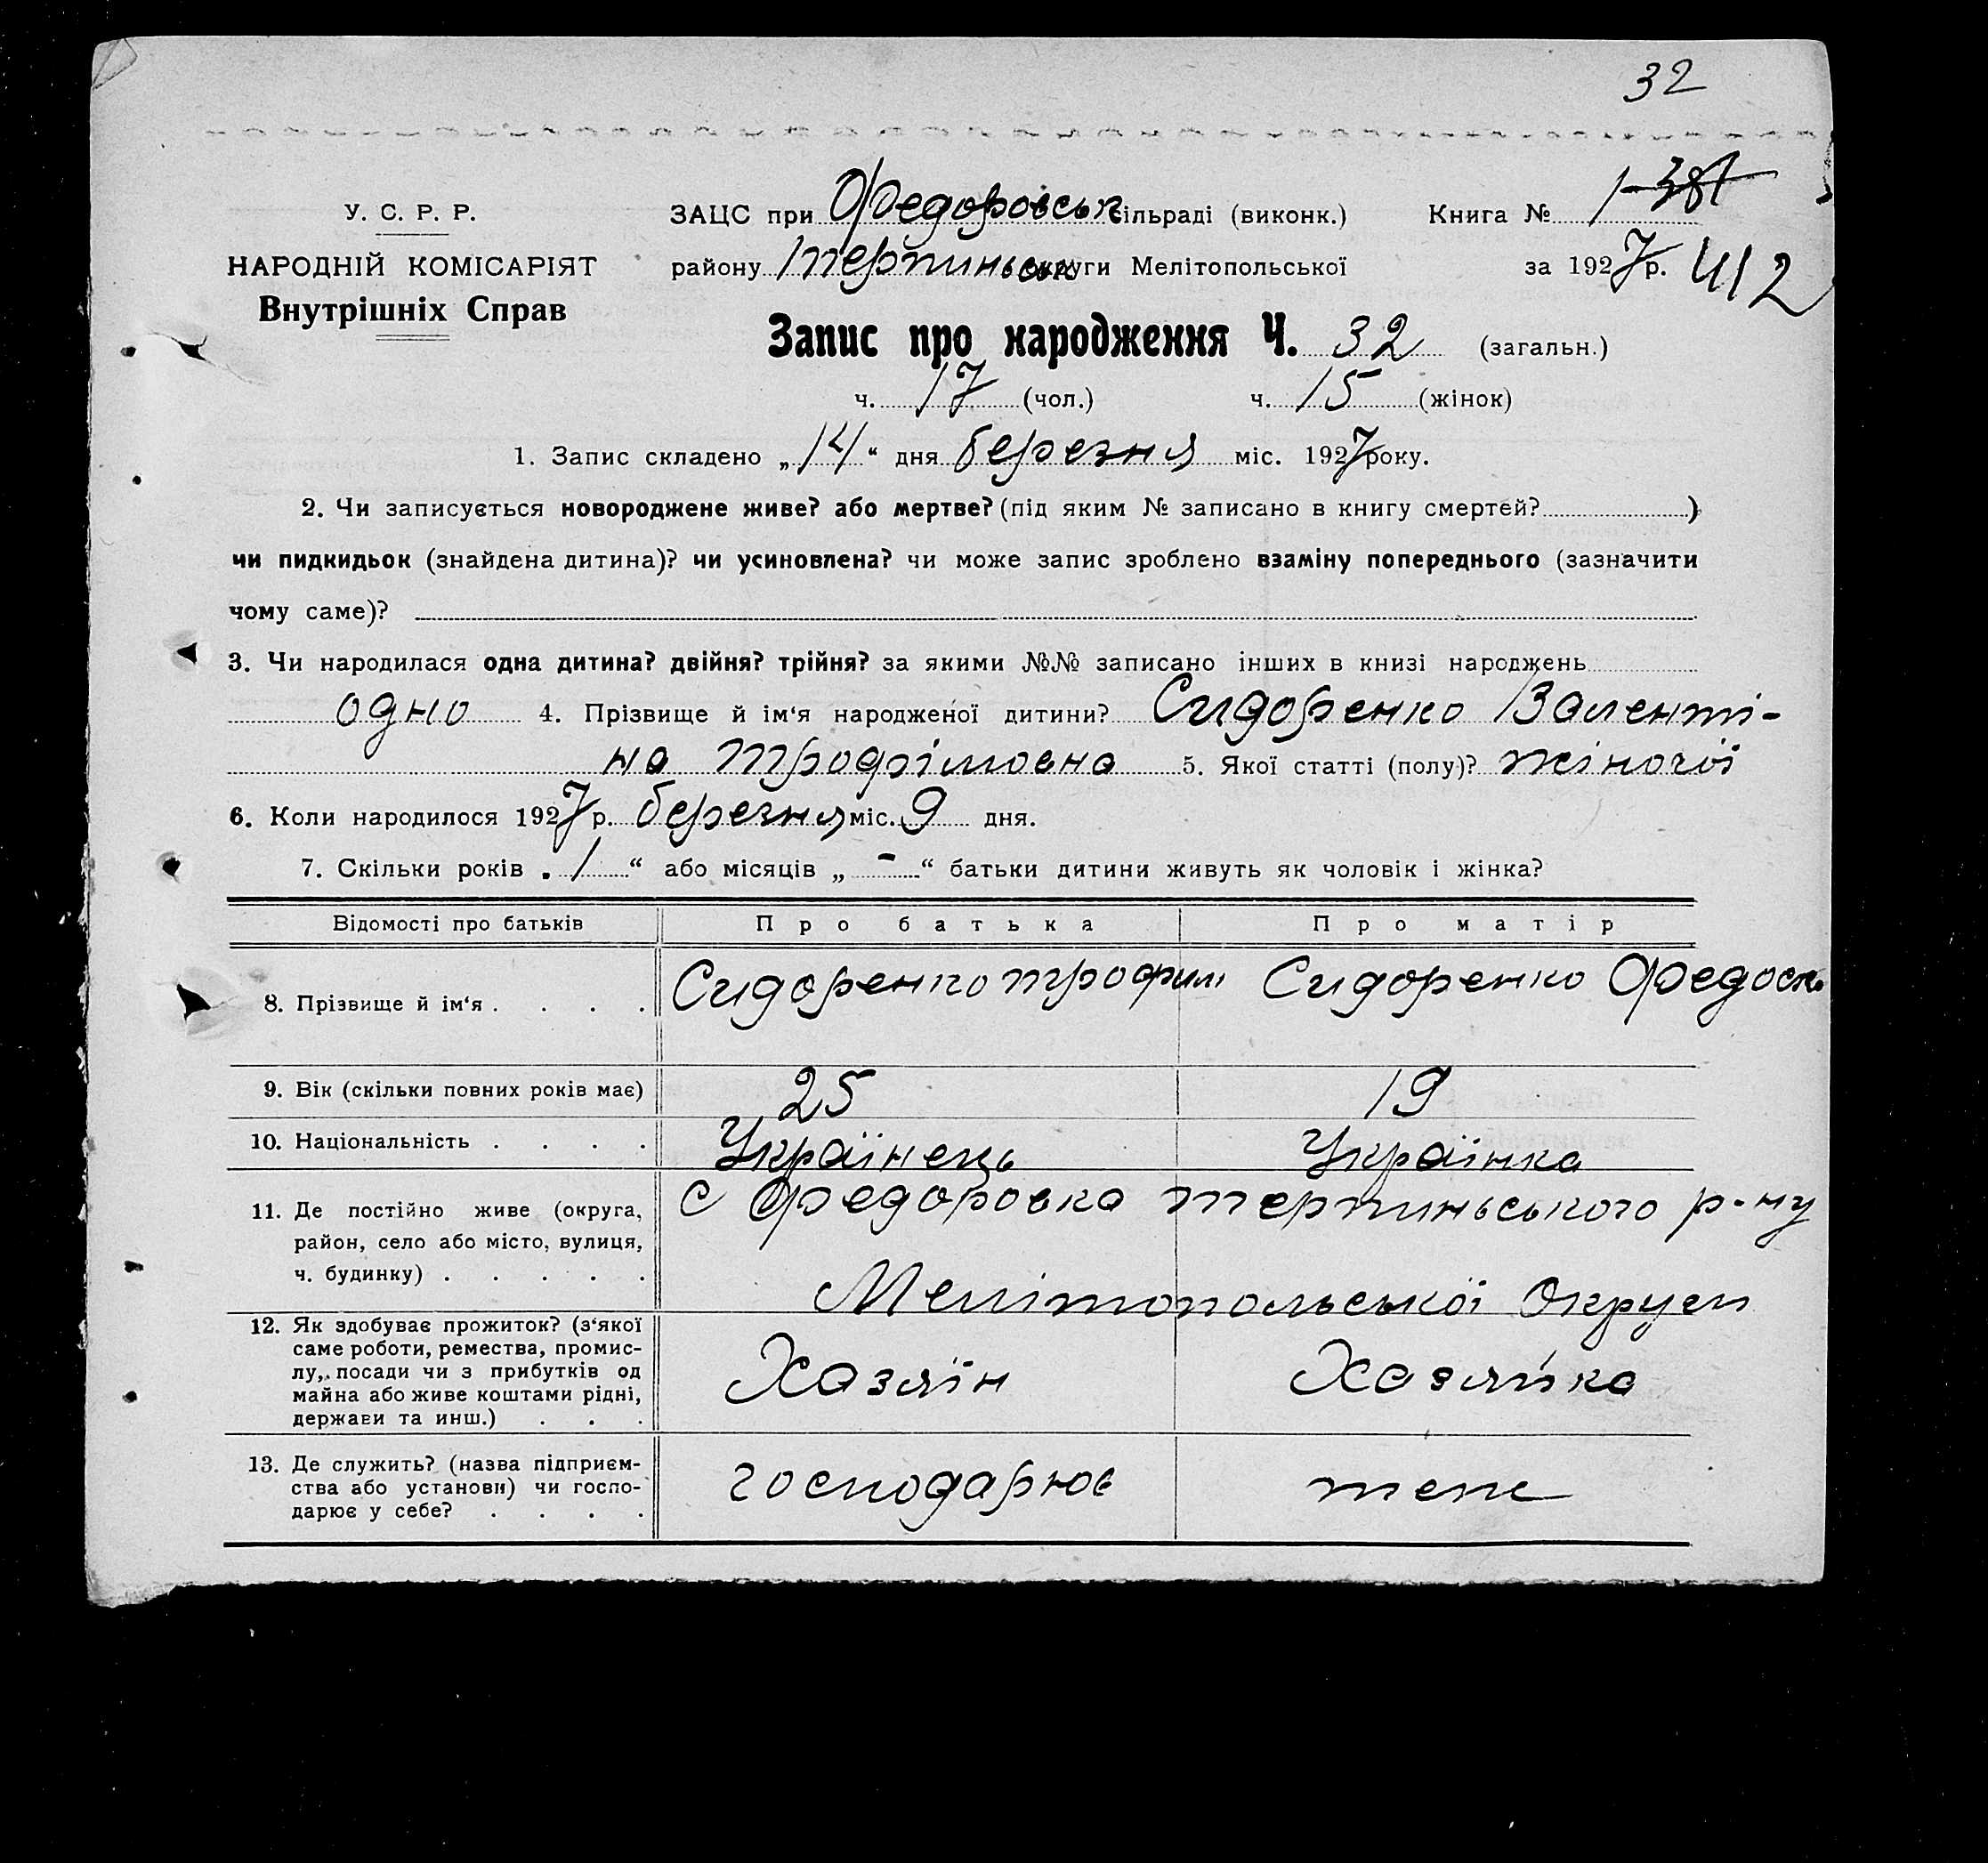 32
У. С. Р. Р.
НАРОДНІЙ КОМІСАРІЯТ
Внутрішніх Справ
ЗАЦС при Федоровськ сільраді (виконк.) Книга № 1
району Терпиньськ округи Мелітопольської за 1927 р. 412
Запис про народження Ч. 32 (загальн.)
ч. 17 (чол.) ч. 15 (жінок)
1. Запис складено „14“ дня березня міс. 1927 року.
2. Чи записується новороджене живе? або мертве? (під яким № записано в книгу смертей? )
чи пидкидьок (знайдена дитина)? чи усиновлена? чи може запис зроблено взаміну попереднього (зазначити
чому саме)?
3. Чи народилася одна дитина? двійня? трійня? за якими №№ записано інших в книзі народжень
одно 4. Прізвище й ім‘я народженої дитини? Сидоренко Валенті-
на Трофімовна 5. Якої статті (полу)? жіночої
6. Коли народилося 1927 р. березня міс. 9 дня.
7. Скільки років „1“ або місяців „-“ батьки дитини живуть як чоловік і жінка?
Відомості про батьків Про батька Про матір
8. Прізвище й ім‘я . . . . Сидоренко Трофим Сидоренко Федось
9. Вік (скільки повних років має) 25 19
10. Національність . . . . Українець Українка
11. Де постійно живе (округа, с Федоровка Терпиньського р-ну
район, село або місто, вулиця,
ч. будинку) . . . . . Мелітопольської Округи
12. Як здобуває прожиток? (з‘якої
саме роботи, ремества, промис-
лу, посади чи з прибутків од Хазяїн Хазяйка
майна або живе коштами рідні,
держави та инш.) . . .
13. Де служить? (назва підприєм-
ства або установи) чи госпо- господарює теж
дарює у себе? . . . .